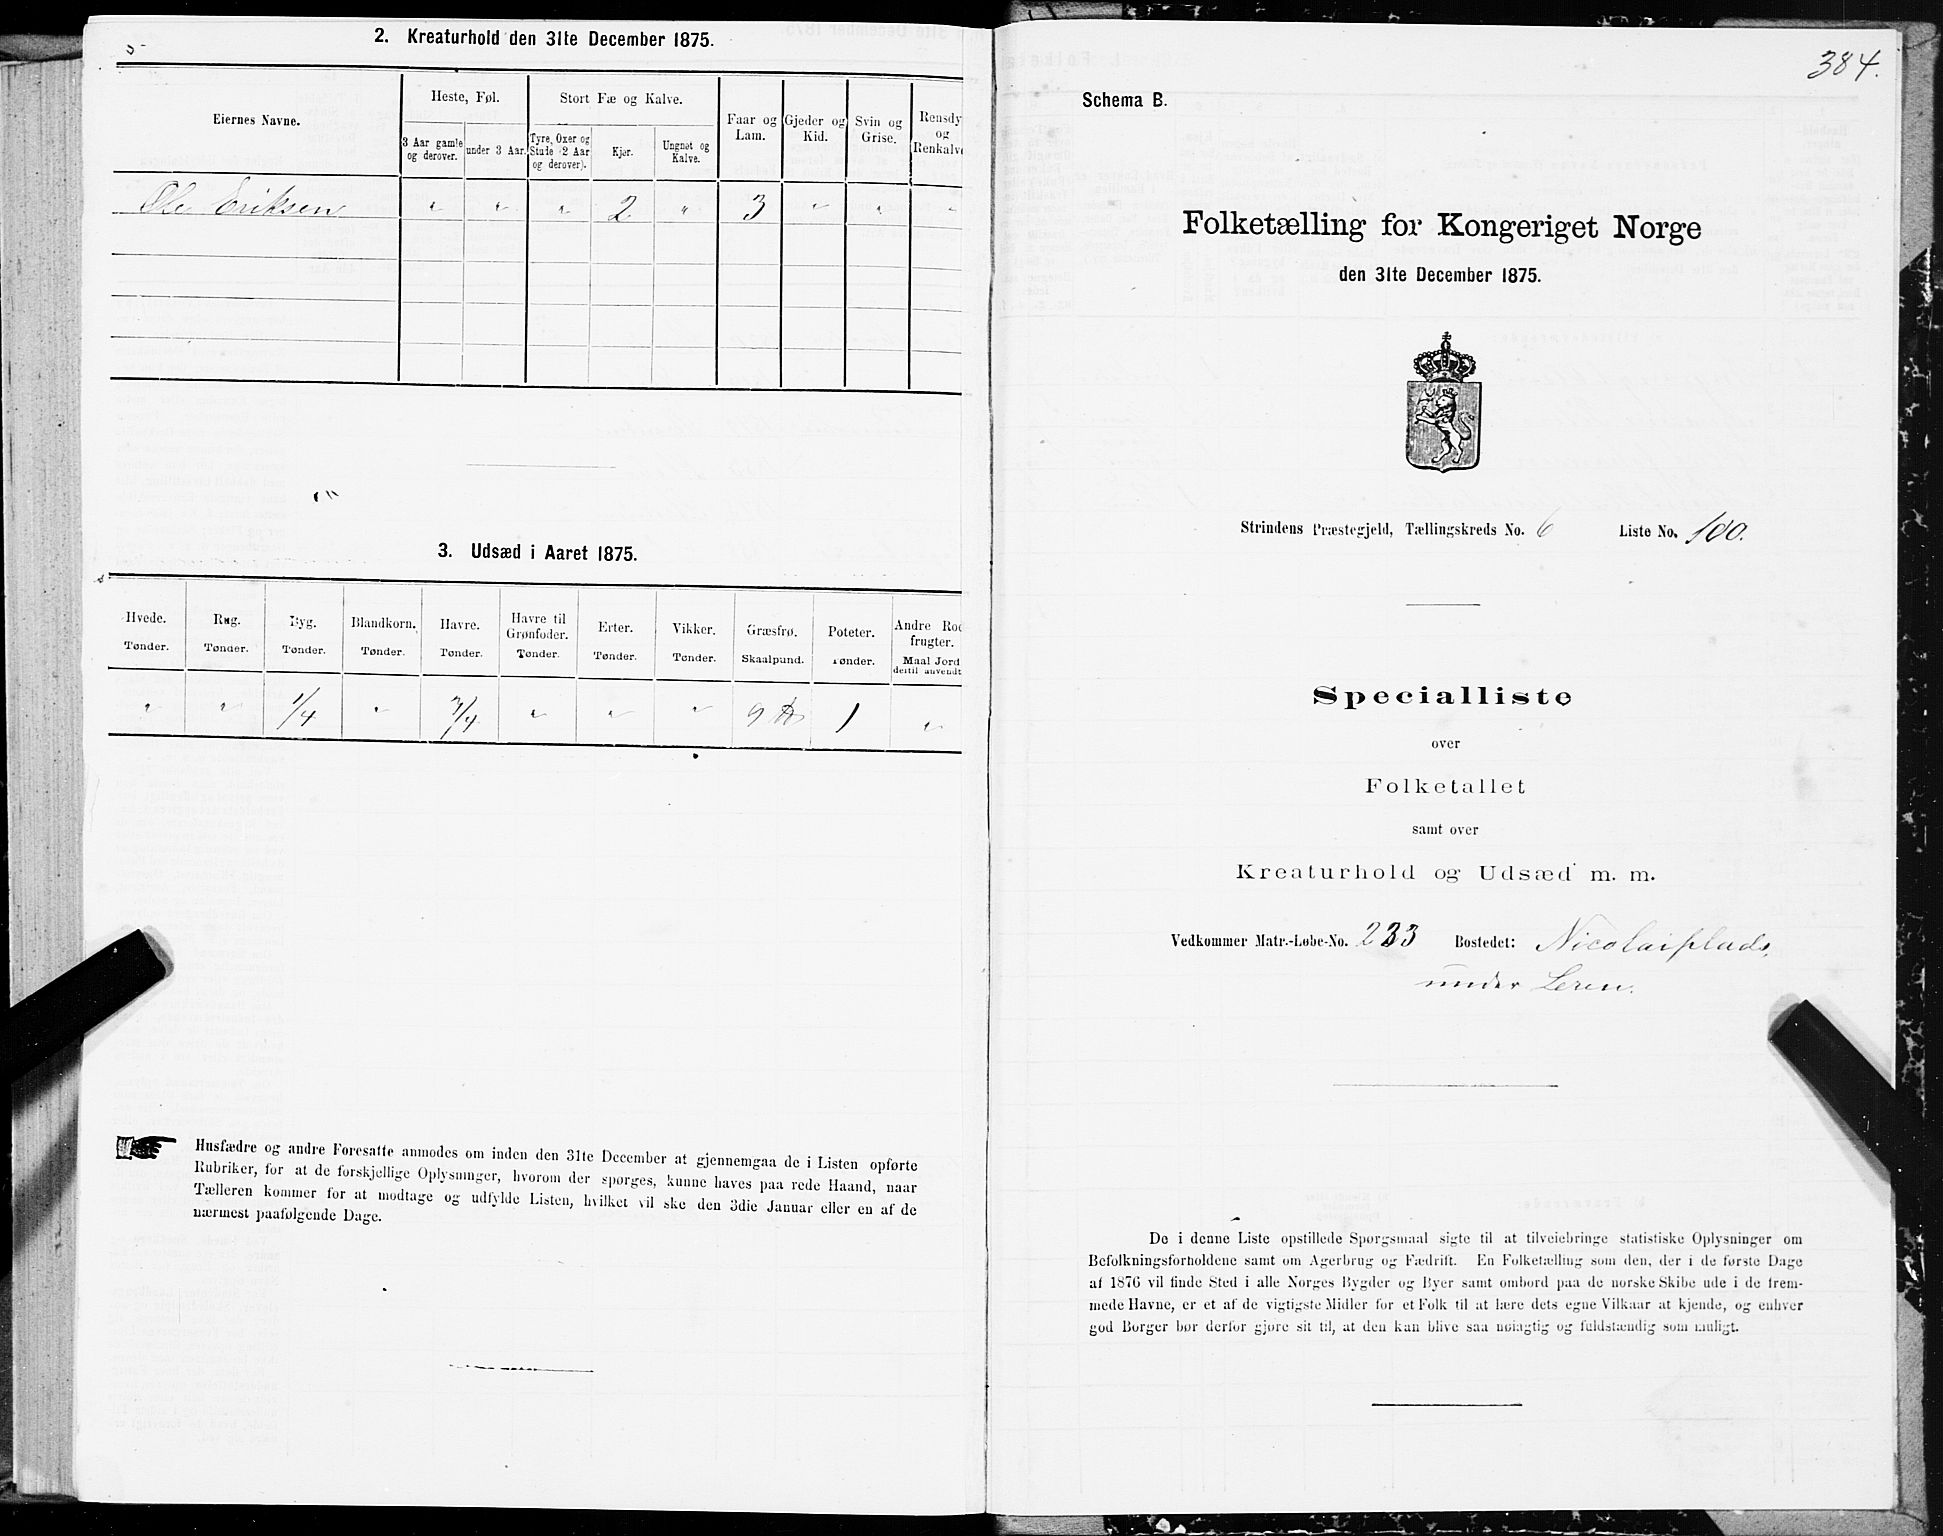 2. Kreaturhold den 31te December 1875.
Eiernes Navne.
Heste, Føl.
Stort Fæ og Kalve.
3 Aar gamle og derover.
under 3 Aar.
Tyre, Oxer og Stude (2 Aar og derover).
Kjør.
Ungnøt og Kalve.
Faar og Lam.
Gjeder og Kid.
Svin og Grise.
Rensdy og Renkalve
Ole Eriksen " " " 2 " 3 " " "
3. Udsæd i Aaret 1875.
Hvede. Rug. Byg. Blandkorn. Havre. Havre til Grønfoder. Erter. Vikker. Græsfrø. Poteter. Andre Rod frugter.
Tønder. Tønder. Tønder. Tønder. Tønder. Tønder. Tønder. Tønder. Skaalpund. Tønder. Maal Jord dertil anvendt
" " 1/4 " 3/4 " " " 9 ℔ 1 "
Husfædre og andre Foresatte anmodes om inden den 31te December at gjennemgaa de i Listen opførte
Rubriker, for at de forskjellige Oplysninger, hvorom der spørges, kunne haves paa rede Haand, naar
Tælleren kommer for at modtage og udfylde Listen, hvilket vil ske den 3die Januar eller en af de
nærmest paafølgende Dage.
384.
Schema B.
Folketælling for Kongeriget Norge
den 31te December 1875.
Strindens Præstegjeld, Tællingskreds No. 6 Liste No. 100.
Specialliste
over
Folketallet
samt over
Kreaturhold og Udsæd m. m.
Vedkommer Matr.-Løbe-No. 233 Bostedet: Nicolaiplads,
under Leren.
De i denne Liste opstillede Spørgsmaal sigte til at tilveiebringe statistiske Oplysninger om
Befolkningsforholdene samt om Agerbrug og Fædrift. En Folketælling som den, der i de første Dage
af 1876 vil finde Sted i alle Norges Bygder og Byer samt ombord paa de norske Skibe ude i de frem-
mede Havne, er et af de vigtigste Midler for et Folk til at lære dets egne Vilkaar at kjende, og enhver
god Borger bør derfor gjøre sit til, at den kan blive saa nøiagtig og fuldstændig som muligt.